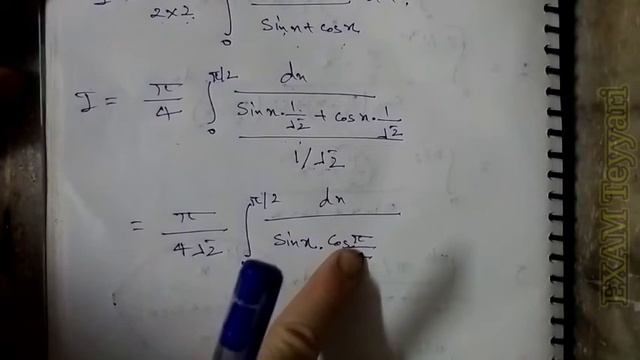 2×2 0 Sinx + cosx
I = π/4 ∫₀^π/2 dx / ((Sinx · 1/√2 + cosx · 1/√2) / (1/√2))
= π/(4√2) ∫^π/2 dx / (Sinx · Cos π
EXAM Teyyari